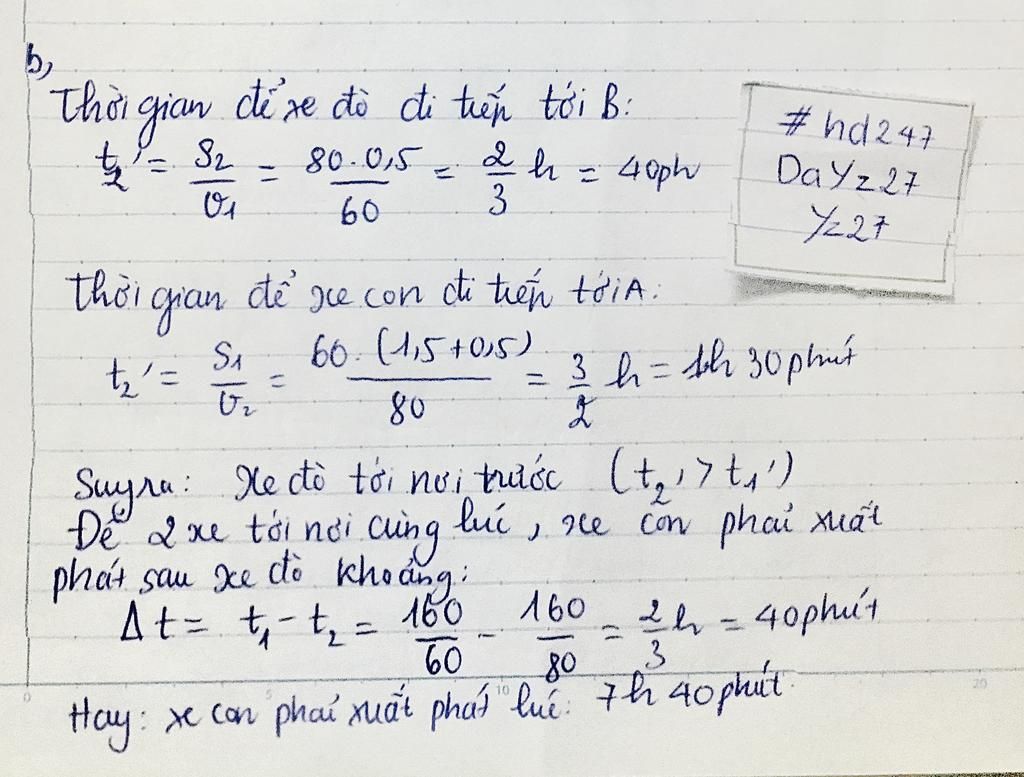 b,
Thời gian để xe đò đi tiếp tới B:
t₂' = S₂/v₁ = 80.0,5/60 = 2/3 h = 40ph
#hd247
DaYz27
Yz27
Thời gian để xe con đi tiếp tới A:
t₂' = S₁/v₂ = 60.(1,5+0,5)/80 = 3/2 h = 1h 30 phút
Suy ra: Xe đò tới nơi trước (t₂' > t₁')
Để 2 xe tới nơi cùng lúc, xe con phải xuất
phát sau xe đò khoảng:
Δt = t₁ - t₂ = 160/60 - 160/80 = 2/3 h = 40 phút
Hay: xe con phải xuất phát lúc: 7h 40 phút.
0 5 10 20